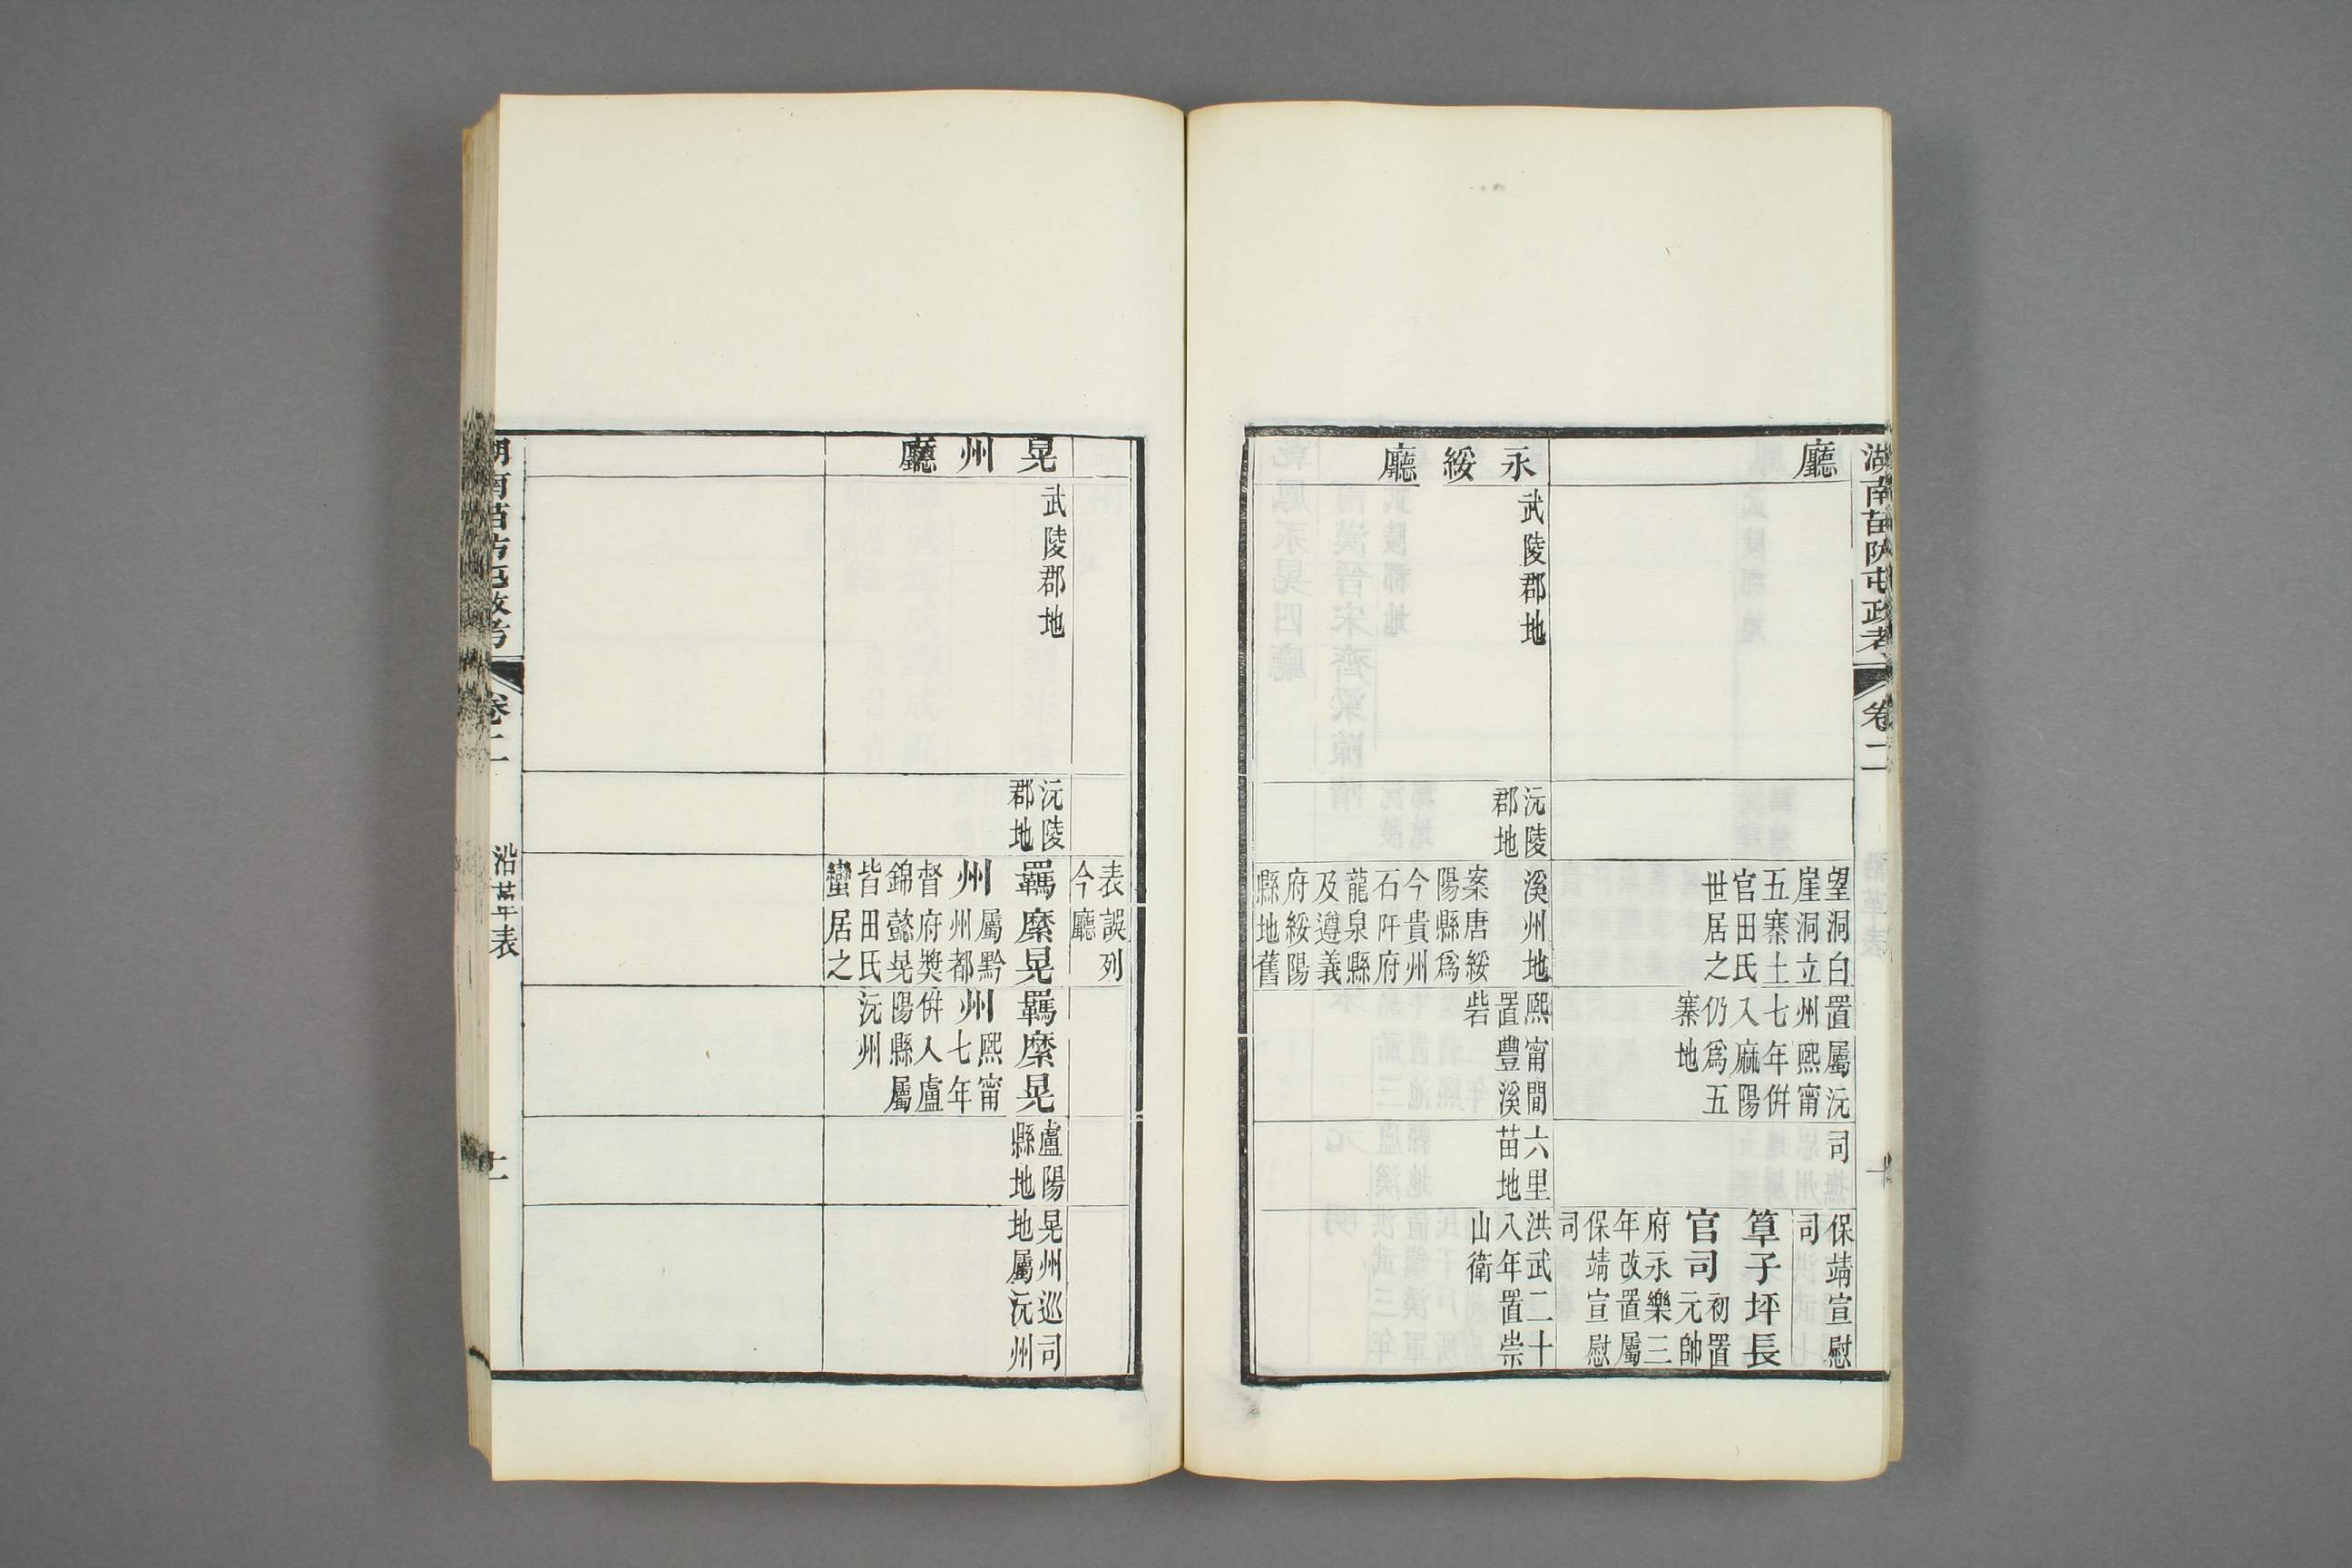 湖南苗防屯政考
卷二
廳
望洞白
崖洞立
五寨土
官田氏
世居之
置屬沅
州熙甯
七年併
入麻陽
仍爲五
寨地
司
保靖宣慰
司
筸子坪長
官司
初置
元帥
府永樂三
年改置屬
保靖宣慰
司
永綏廳
武陵郡地
沅陵
郡地
溪州地
案唐綏
陽縣爲
今貴州
石阡府
龍泉縣
及遵義
府綏陽
縣地舊
熙甯間
置豐溪
砦
六里
苗地
洪武二十
八年置崇
山衛
表誤列
今廳
晃州廳
武陵郡地
沅陵
郡地
羈縻晃
州
屬黔
州都
督府奬
錦懿晃
皆田氏
蠻居之
羈縻晃
州
熙甯
七年
併入盧
陽縣屬
沅州
盧陽
縣地
晃州巡司
地屬沅州
卷二
沿革表